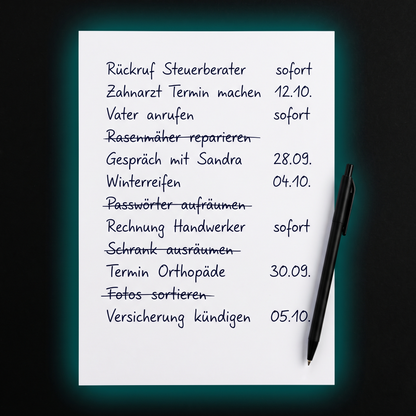 Rückruf Steuerberater sofort
Zahnarzt Termin machen 12.10.
Vater anrufen sofort
Rasenmäher reparieren
Gespräch mit Sandra 28.09.
Winterreifen 04.10.
Passwörter aufräumen
Rechnung Handwerker sofort
Schrank ausräumen
Termin Orthopäde 30.09.
Fotos sortieren
Versicherung kündigen 05.10.